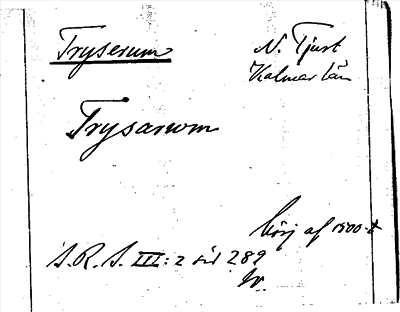 Tryserum
N. Tjust
Kalmar län
Trysarum
börj af 1500-t
S.R.S. III: 2 sid 289